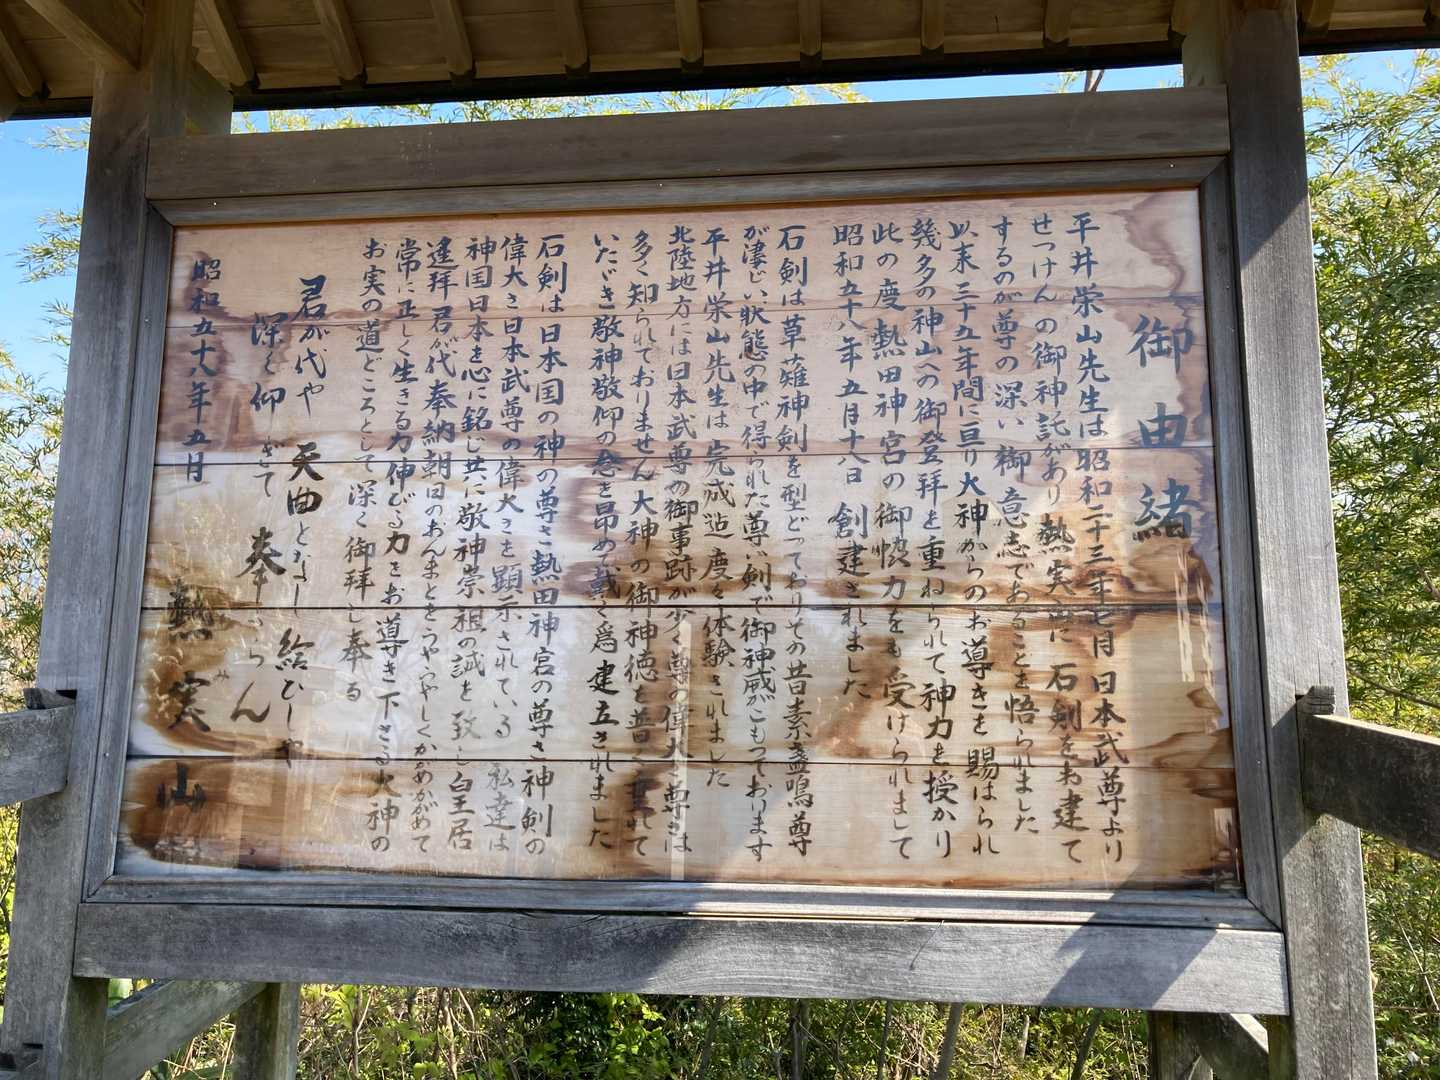 御由緒
平井栄山先生は昭和二十三年七月日本武尊より
せつけんの御神託があり熱実山に石剣をお建て
するのが尊の深い御意志であることを悟られました
以来三十五年間に亘り大神からのお導きを賜はられ
幾多の神山への御登拝を重ねられて神力を授かり
此の度熱田神宮の御力をも受けられまして
昭和五十八年五月十八日創建されました
石剣は草薙神剣を型どっておりその昔素盞鳴尊
が凄じい状態の中で得られた尊い剣で御神威がこもっております
平井栄山先生は完成迠度々体験されました
北陸地方には日本武尊の御事跡が少く尊の偉大さ尊さは
多く知られておりません大神の御神徳を普く垂れて
いたゞき敬神敬仰の念を昂めて戴く為建立されました
石剣は日本国の神の尊さ熱田神宮の尊さ神剣の
偉大さ日本武尊の偉大さを顕示されている私達は
神国日本を心に銘じ共に敬神崇祖の誠を致し皇居
遙拝君が代奉納朝日のおんまとをうやうやしくかゞめかゞめて
常に正しく生きる力伸びる力をお導き下さる大神の
お実の道どころとして深く御拝し奉る
君が代や 天曲となりし 絵ひしや
深く仰ぎて 奉らん
昭和五十八年五月 熱実山